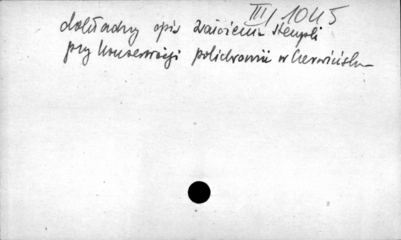 III/1045
dokładny opis zawiecenia stempli
przy konserwacji polichromii w Czerwińsku